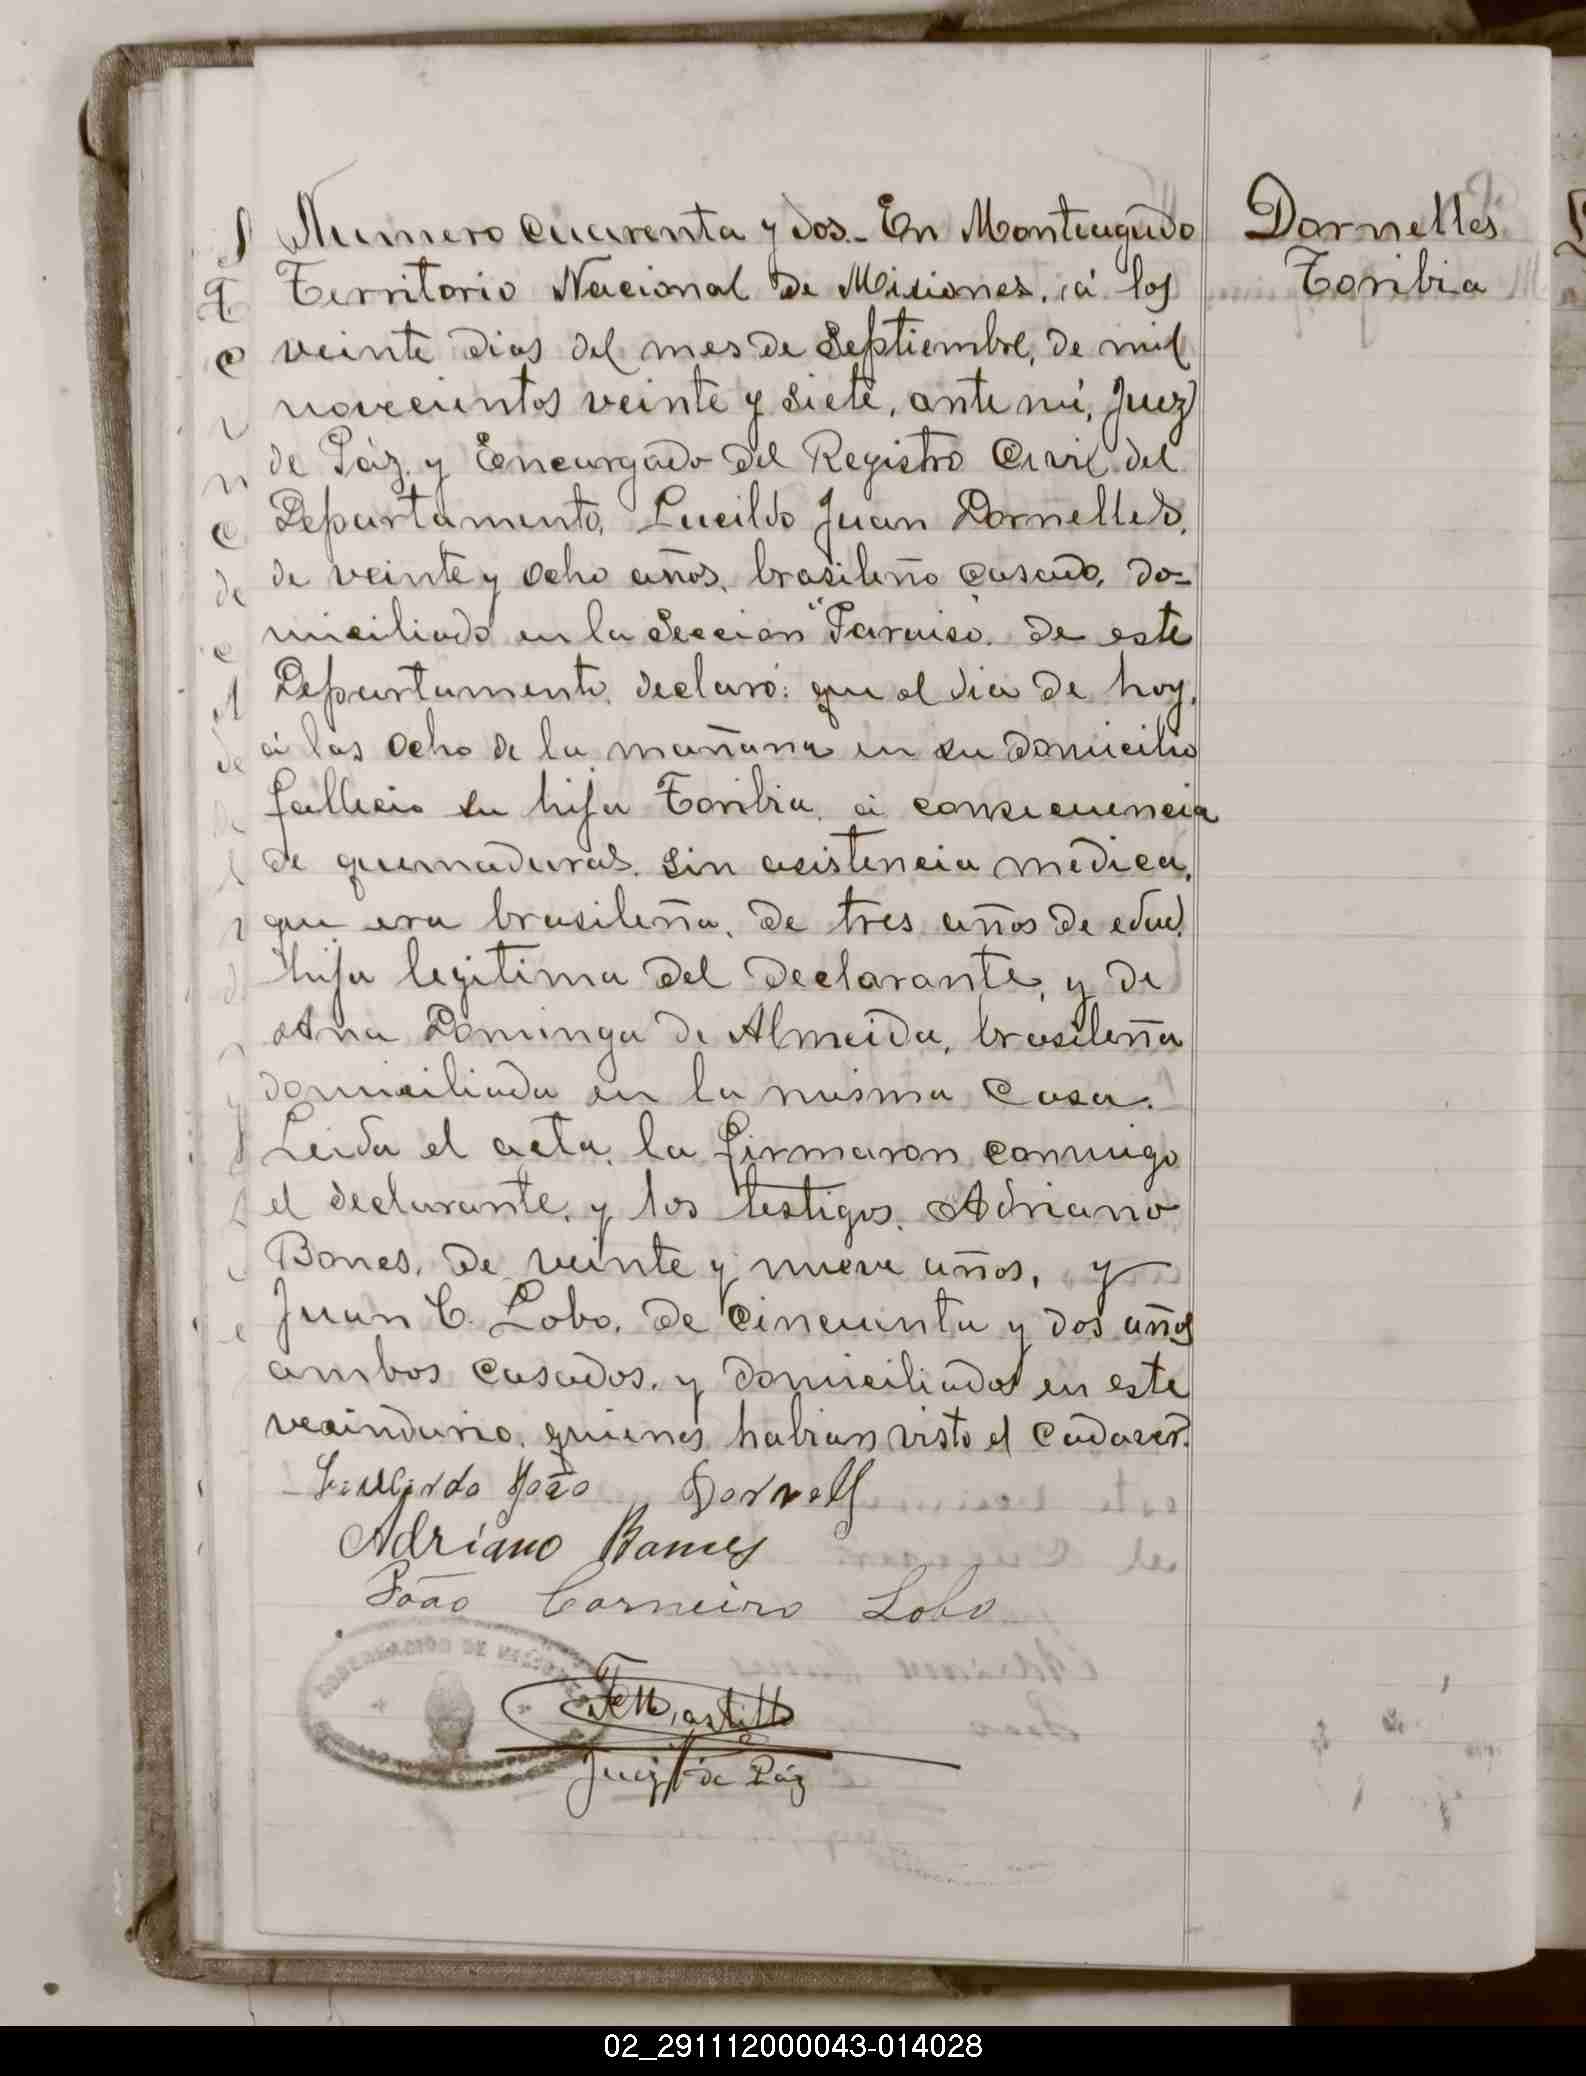 Dornelles
Toribia
Numero cuarenta y dos.- En Monteagudo
Territorio Nacional de Misiones, á los
veinte dias del mes de Septiembre, de mil
novecientos veinte y siete, ante mí, Juez
de Páz y Encargado del Registro Civil del
Departamento, Lucildo Juan Dornelles,
de veinte y ocho años, brasileño casado, do-
miciliado en la Seccion "Paraiso" de este
Departamento, declaró: que el dia de hoy,
á las ocho de la mañana en su domicilio
fallecio su hija Toribia, á consecuencia
de quemaduras, sin asistencia medica,
que era brasileña, de tres años de edad,
hija legitima del declarante, y de
Ana Dominga de Almeida, brasileña
domiciliada en la misma casa.
Leida el acta, la firmaron conmigo
el declarante, y los testigos, Adriano
Bones, de veinte y nueve años, y
Juan C. Lobo, de cincuenta y dos años
ambos casados, y domiciliados en este
vecindario, quienes habian visto el cadaver.
Adriano
João Carneiro Lobo
GOBERNACIÓN DE MISIONES
Juez de Páz
02_291112000043-014028